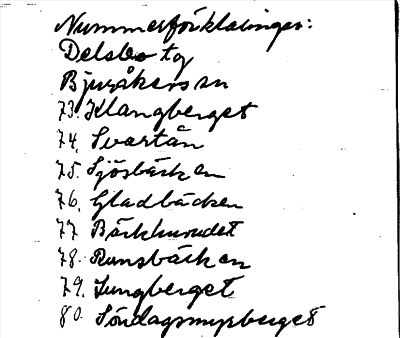 Nummerförklaringar:
Delsbo tg
Bjuråkers sn
73. Klangberget
74. Svartån
75. Sjösbäcken
76. Gladbäcken
77 Börkhuvudet
78. Runsbäcken
79. Ljungberget
80. Söndagsmyrberget